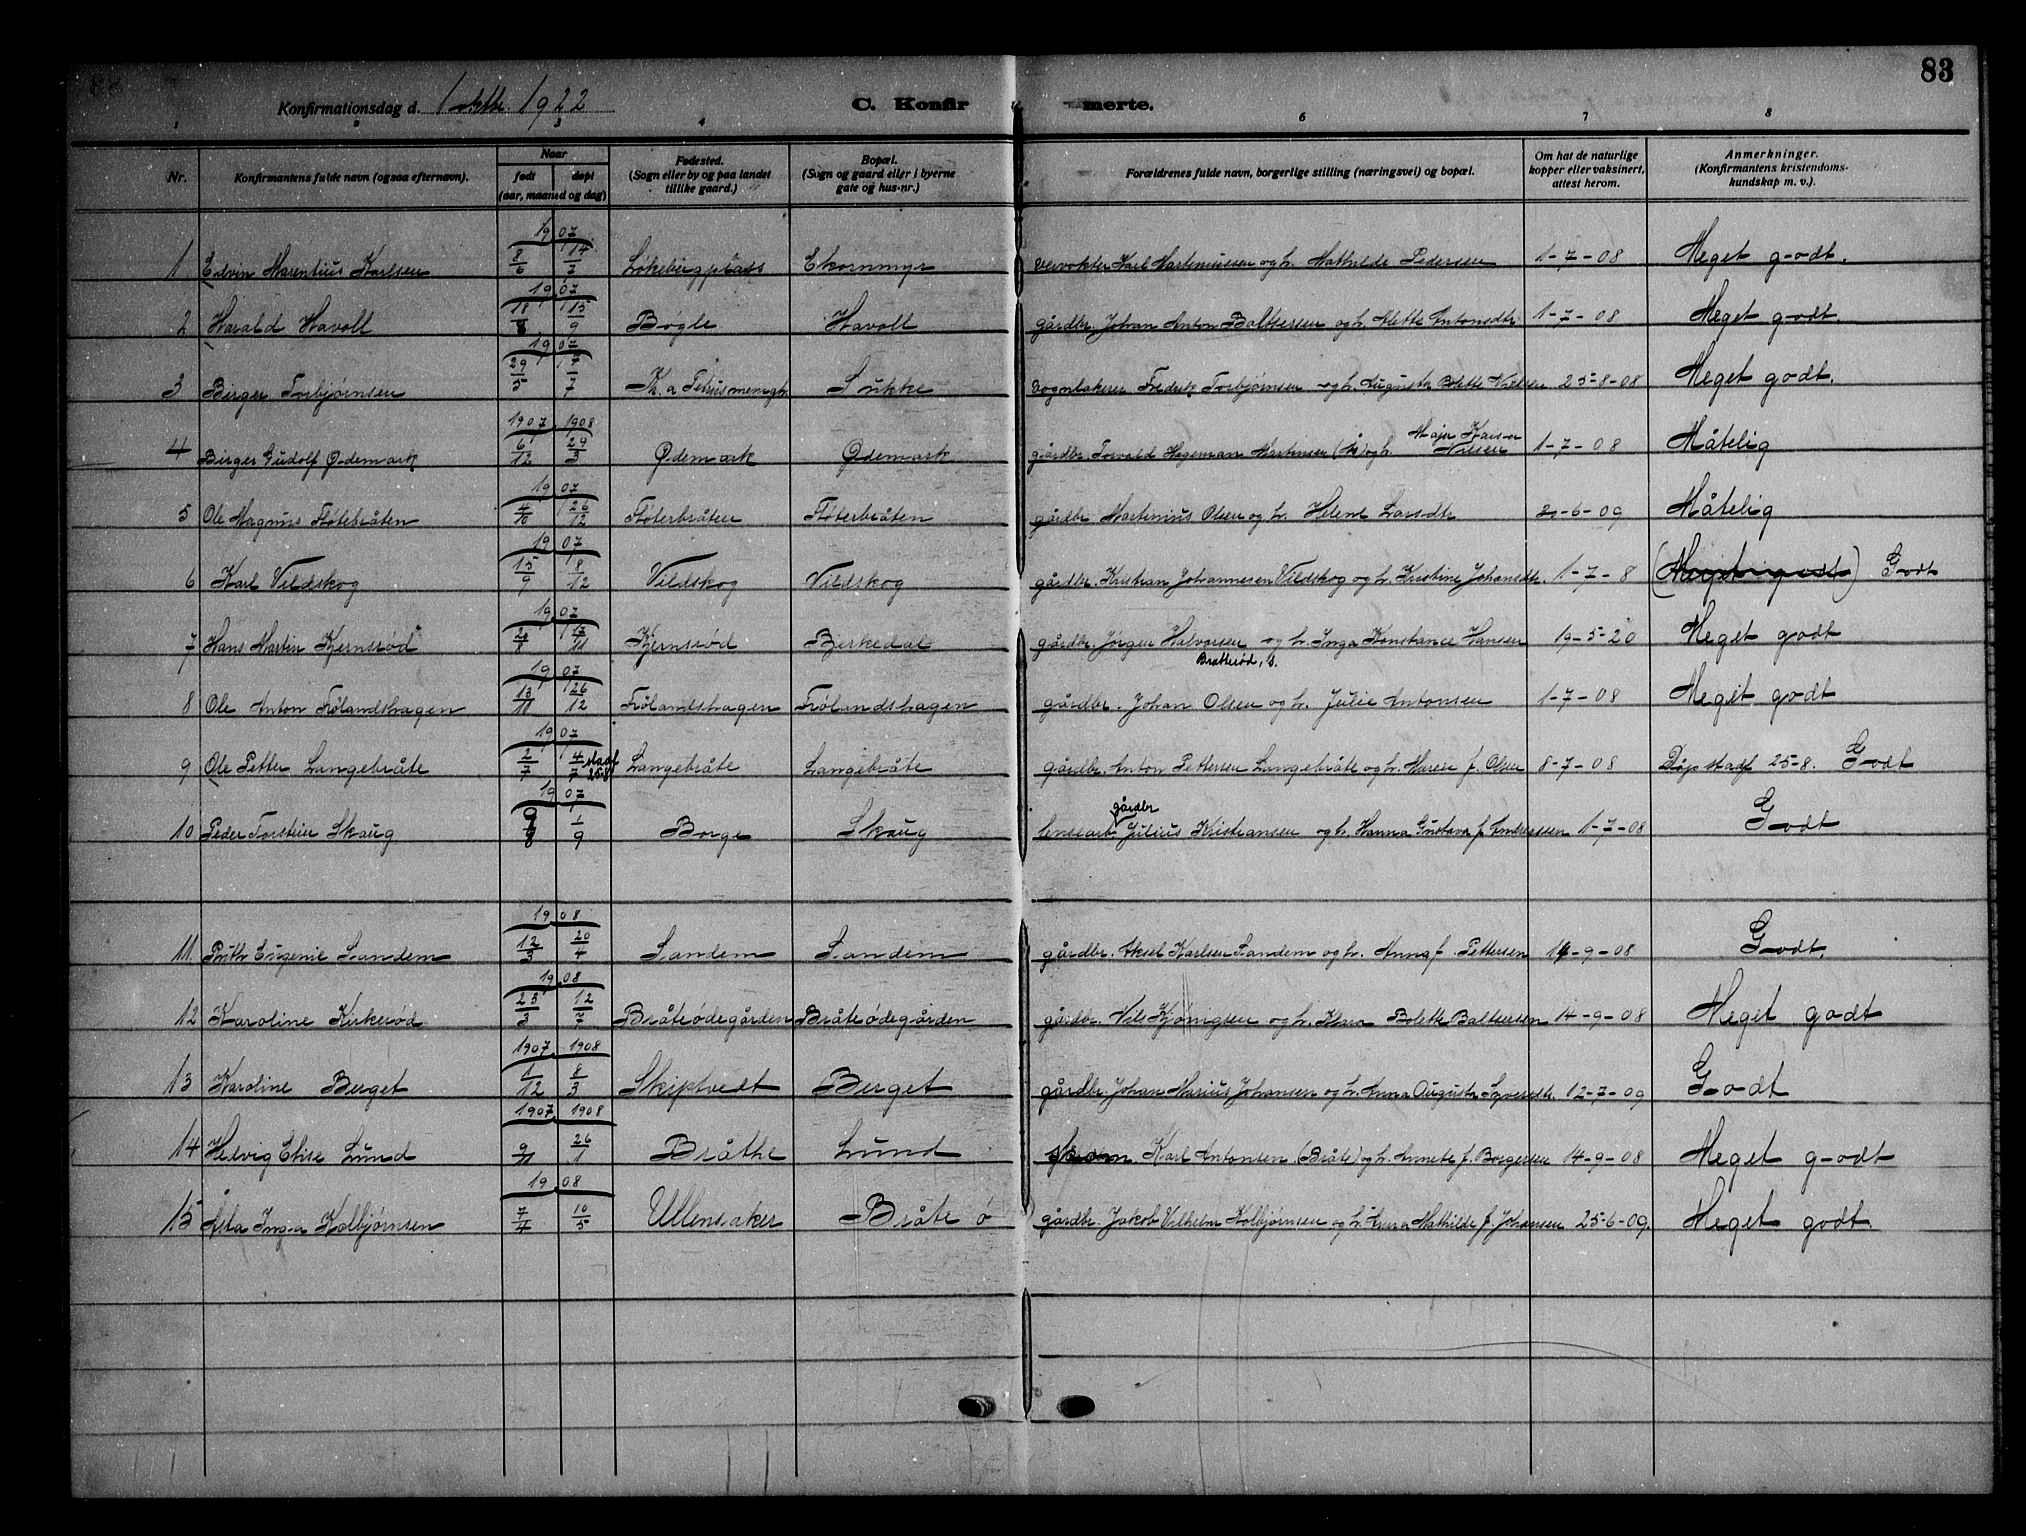 83
Konfirmationsdag d. 1 oktbr. 1922 C. Konfirmerte.
1 2 3 4 6 7 8
Nr. Konfirmantens fulde navn (ogsaa efternavn). Naar født døpt (aar, maaned og dag) Fødested. (Sogn eller by og paa landet tillike gaard.) Bopæl. (Sogn og gaard eller i byerne gate og hus-nr.) Forældrenes fulde navn, borgerlige stilling (næringsvei) og bopæl. Om hat de naturlige kopper eller vaksinert, attest herom. Anmerkninger. (Konfirmantens kristendoms-kundskap m. v.).
1 Edvin Marentius Karlsen 1907 8/6 14/7 Løkebergplads Ekornmyr Karl Martinussen og h. Mathilde Pedersen 1-7-08 Meget godt.
2 Harald Havoll 1907 18/8 15/9 Bøgle Havoll gårdbr. Johan Anton Baltsersen og h. Mette Antonsdtr 1-7-08 Meget godt.
3 Birger Torbjørnsen 1907 29/5 7/7 Kr.a Petrus mengh. Sukke Fredrik Torbjørnsen og h. Augusta Bolette Nielsen 25-8-08 Meget godt.
4 Birger Gudolf Ødemark 1907 6/12 1908 29/3 Ødemark Ødemark gårdbr Torvald Hageman Martinsen og h. Maja Karine Nilsen 1-7-08 Måtelig
5 Ole Magnus Fløtebråten 1907 4/10 26/12 Fløterbråten Fløterbråten gårdbr Martinius Olsen og h. Helene Larsdtr 20-6-09 Måtelig
6 Karl Vildskog 1907 15/9 8/12 Vildskog Vildskog gårdbr. Kristian Johannesen Vildskog og h. Kristine Johansdtr. 1-7-8 (Meget godt) Godt
7 Hans Martin Kjernsrød 1907 17/11 Kjernsrød Berkedal gårdbr. Jørgen Halvorsen og h. Inga Konstance Hansen 19-5-20 Meget godt
Bratterød, s.
8 Ole Anton Frølandshagen 1907 13/11 26/12 Frølandshagen Frølandshagen gårdbr. Johan Olsen og h. Julie Antonsen 1-7-08 Meget godt
9 Ole Petter Langebråte 1907 2/7 4/7 stadf 25-8 Langebråte Langebråte gårdbr. Anton Pettersen Langebråte og h. Maren f. Olsen 8-7-08 Dåp stadf 25-8. Godt
10 Peder Torstein Skaug 1907 9/8 1/9 Borge Skaug gårdbr Julius Kristiansen og h. Hanna Gustava f. Andreassen 1-7-08 Godt
11. Ruth Eugenie Sandem 1908 12/3 20/4 Sandem Sandem gårdbr. Aksel Karlsen Sandem og h. Anna f. Pettersen 14-9-08 Godt.
12 Karoline Kirkerød 1908 23/3 12/7 Bråteødegården Bråteødegården gårdbr. Nils og h. Klara Bolette Baltsersen 14-9-08 Meget godt
13 Karoline Berget 1907 1/12 1908 8/3 Skiptvedt Berget gårdbr. Johan Marius Johansen og h. Anna Augusta Syversdtr. 12-7-09 Godt
14 Helvig Elise Lund 1907 9/11 1908 26/1 Bråthe Lund Karl Antonsen (Bråte) og h. Annete f. Borgersen 14-9-08 Meget godt
15 Asta Inga Kolbjørnsen 1908 7/4 10/5 Ullensaker Bråte ø gårdbr. Jakob Vilhelm Kolbjørnsen og h. Anna Mathilde f. Johansen 25-6-09. Meget godt.